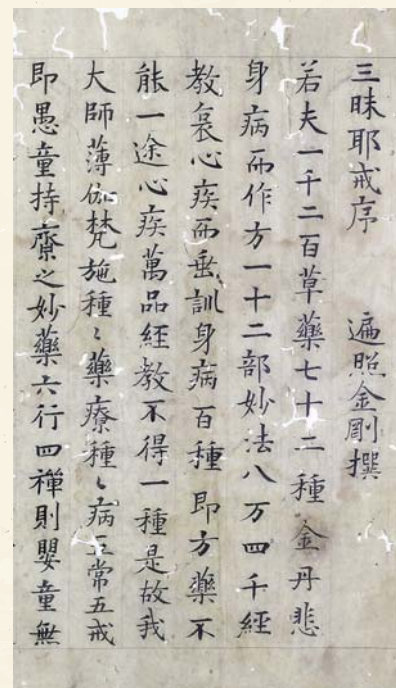 三昧耶戒序　　遍照金剛撰
若夫一千二百草藥七十二種金丹悲
身病而作方一十二部妙法八万四千經
教哀心疾而垂訓身病百種即方藥不
能一途心疾萬品經教不得一種是故我
大師薄伽梵施種〻藥療種〻病五常五戒
即愚童持齋之妙藥六行四禪則嬰童無